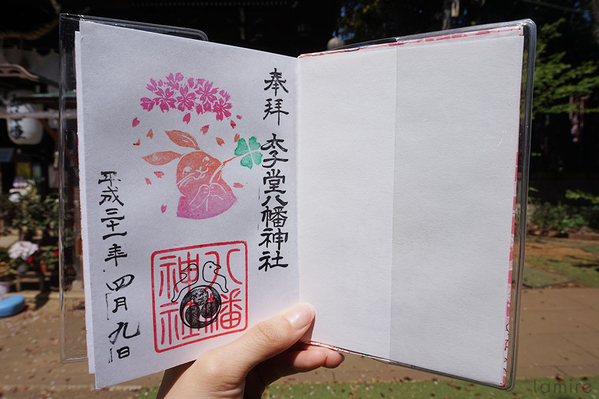 奉拝
太子堂八幡神社
平成三十一年 四月九日
八幡
神社
lamire